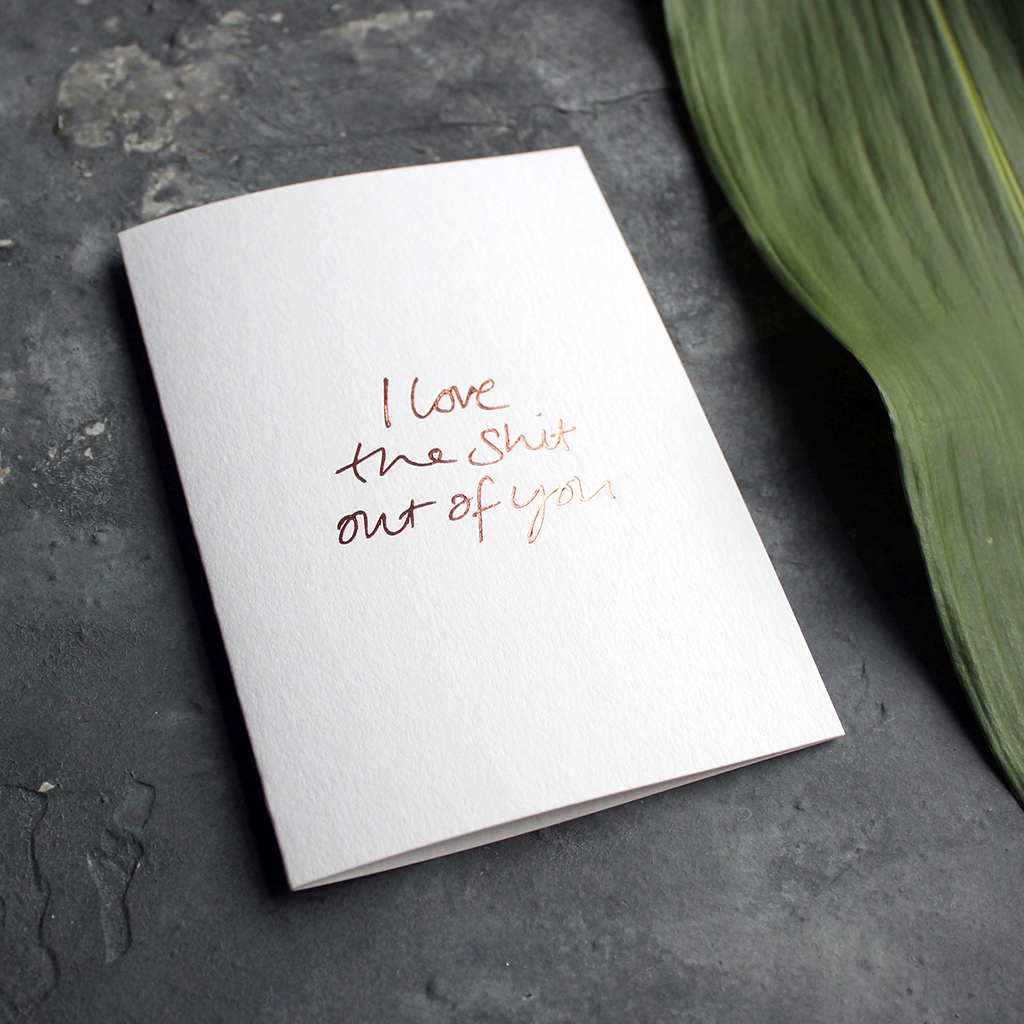 I love
the shit
out of you